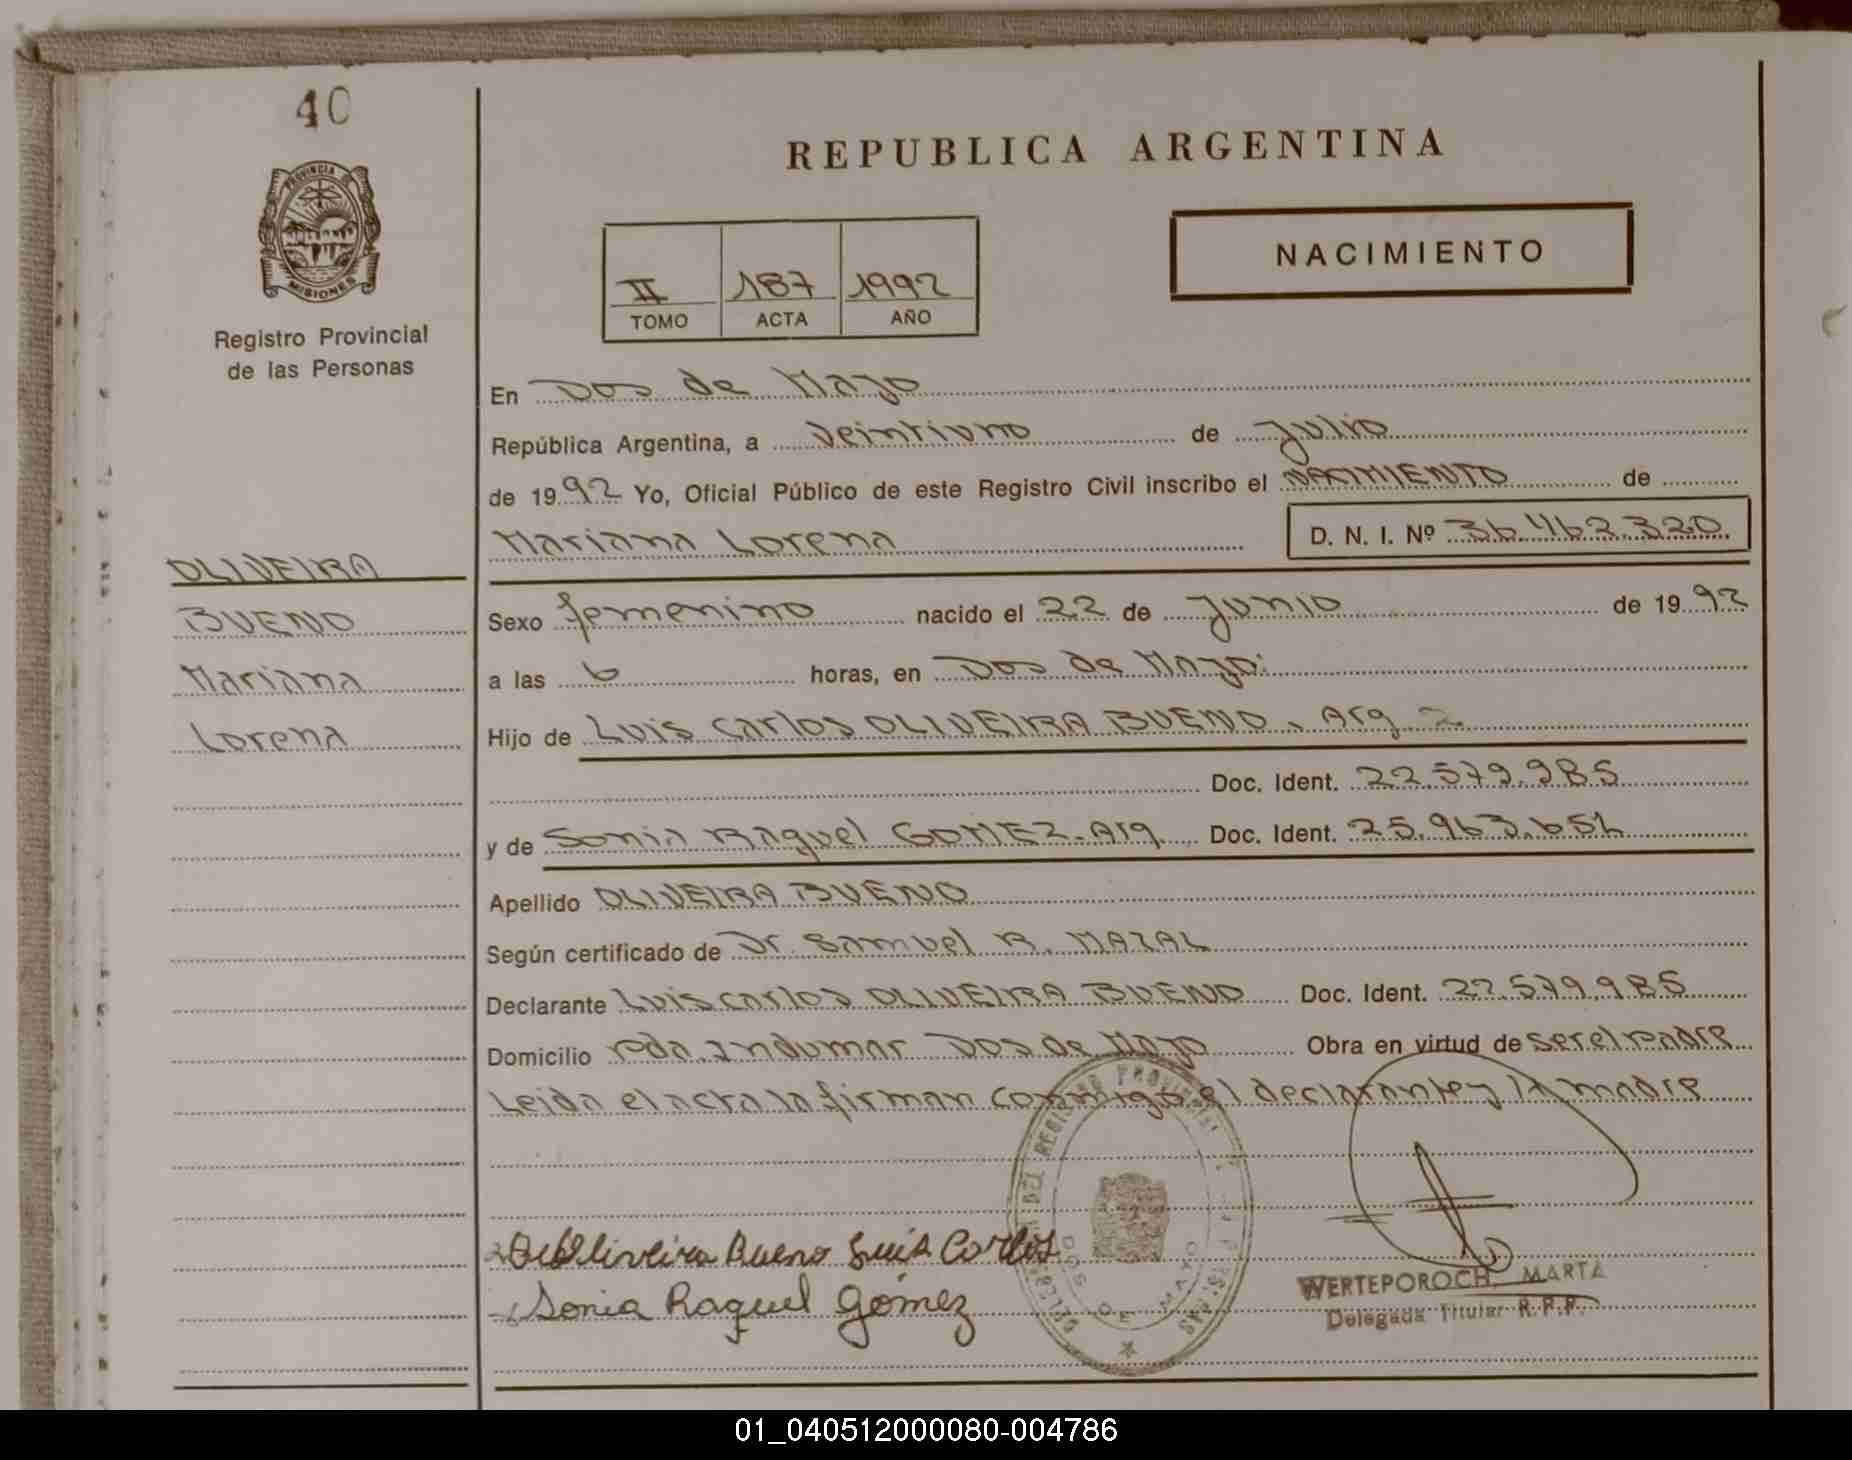 40
PROVINCIA D
MISIONES
Registro Provincial
de las Personas
REPUBLICA ARGENTINA
NACIMIENTO
II 187 1992
TOMO ACTA AÑO
En Dos de Mayo
República Argentina, a Veintiuno de Julio
de 1992 Yo, Oficial Público de este Registro Civil inscribo el NACIMIENTO de
Mariana Lorena D. N. I. Nº 36.462.320
OLIVEIRA
BUENO
Mariana
Lorena
Sexo femenino nacido el 22 de Junio de 1992
a las 6 horas, en Dos de Mayo
Hijo de Luis Carlos OLIVEIRA BUENO, Arg
Doc. Ident. 22.579.985
y de Sonia Raquel GOMEZ-Arg Doc. Ident. 25.963.651
Apellido OLIVEIRA BUENO
Según certificado de Dr. Samuel R. MAZAL
Declarante Luis Carlos OLIVEIRA BUENO Doc. Ident. 22.579.985
Domicilio Dos de Mayo Obra en virtud de ser el padre
Leida el acta la firman conmigo el declarante y la madre
DEL REGISTRO PROVINCIAL
DOS DE MAYO
Oliveira Bueno Luis Carlos
Sonia Raquel Gómez
WERTEPOROCH, MARTA
Delegada Titular R.P.P.
01_040512000080-004786